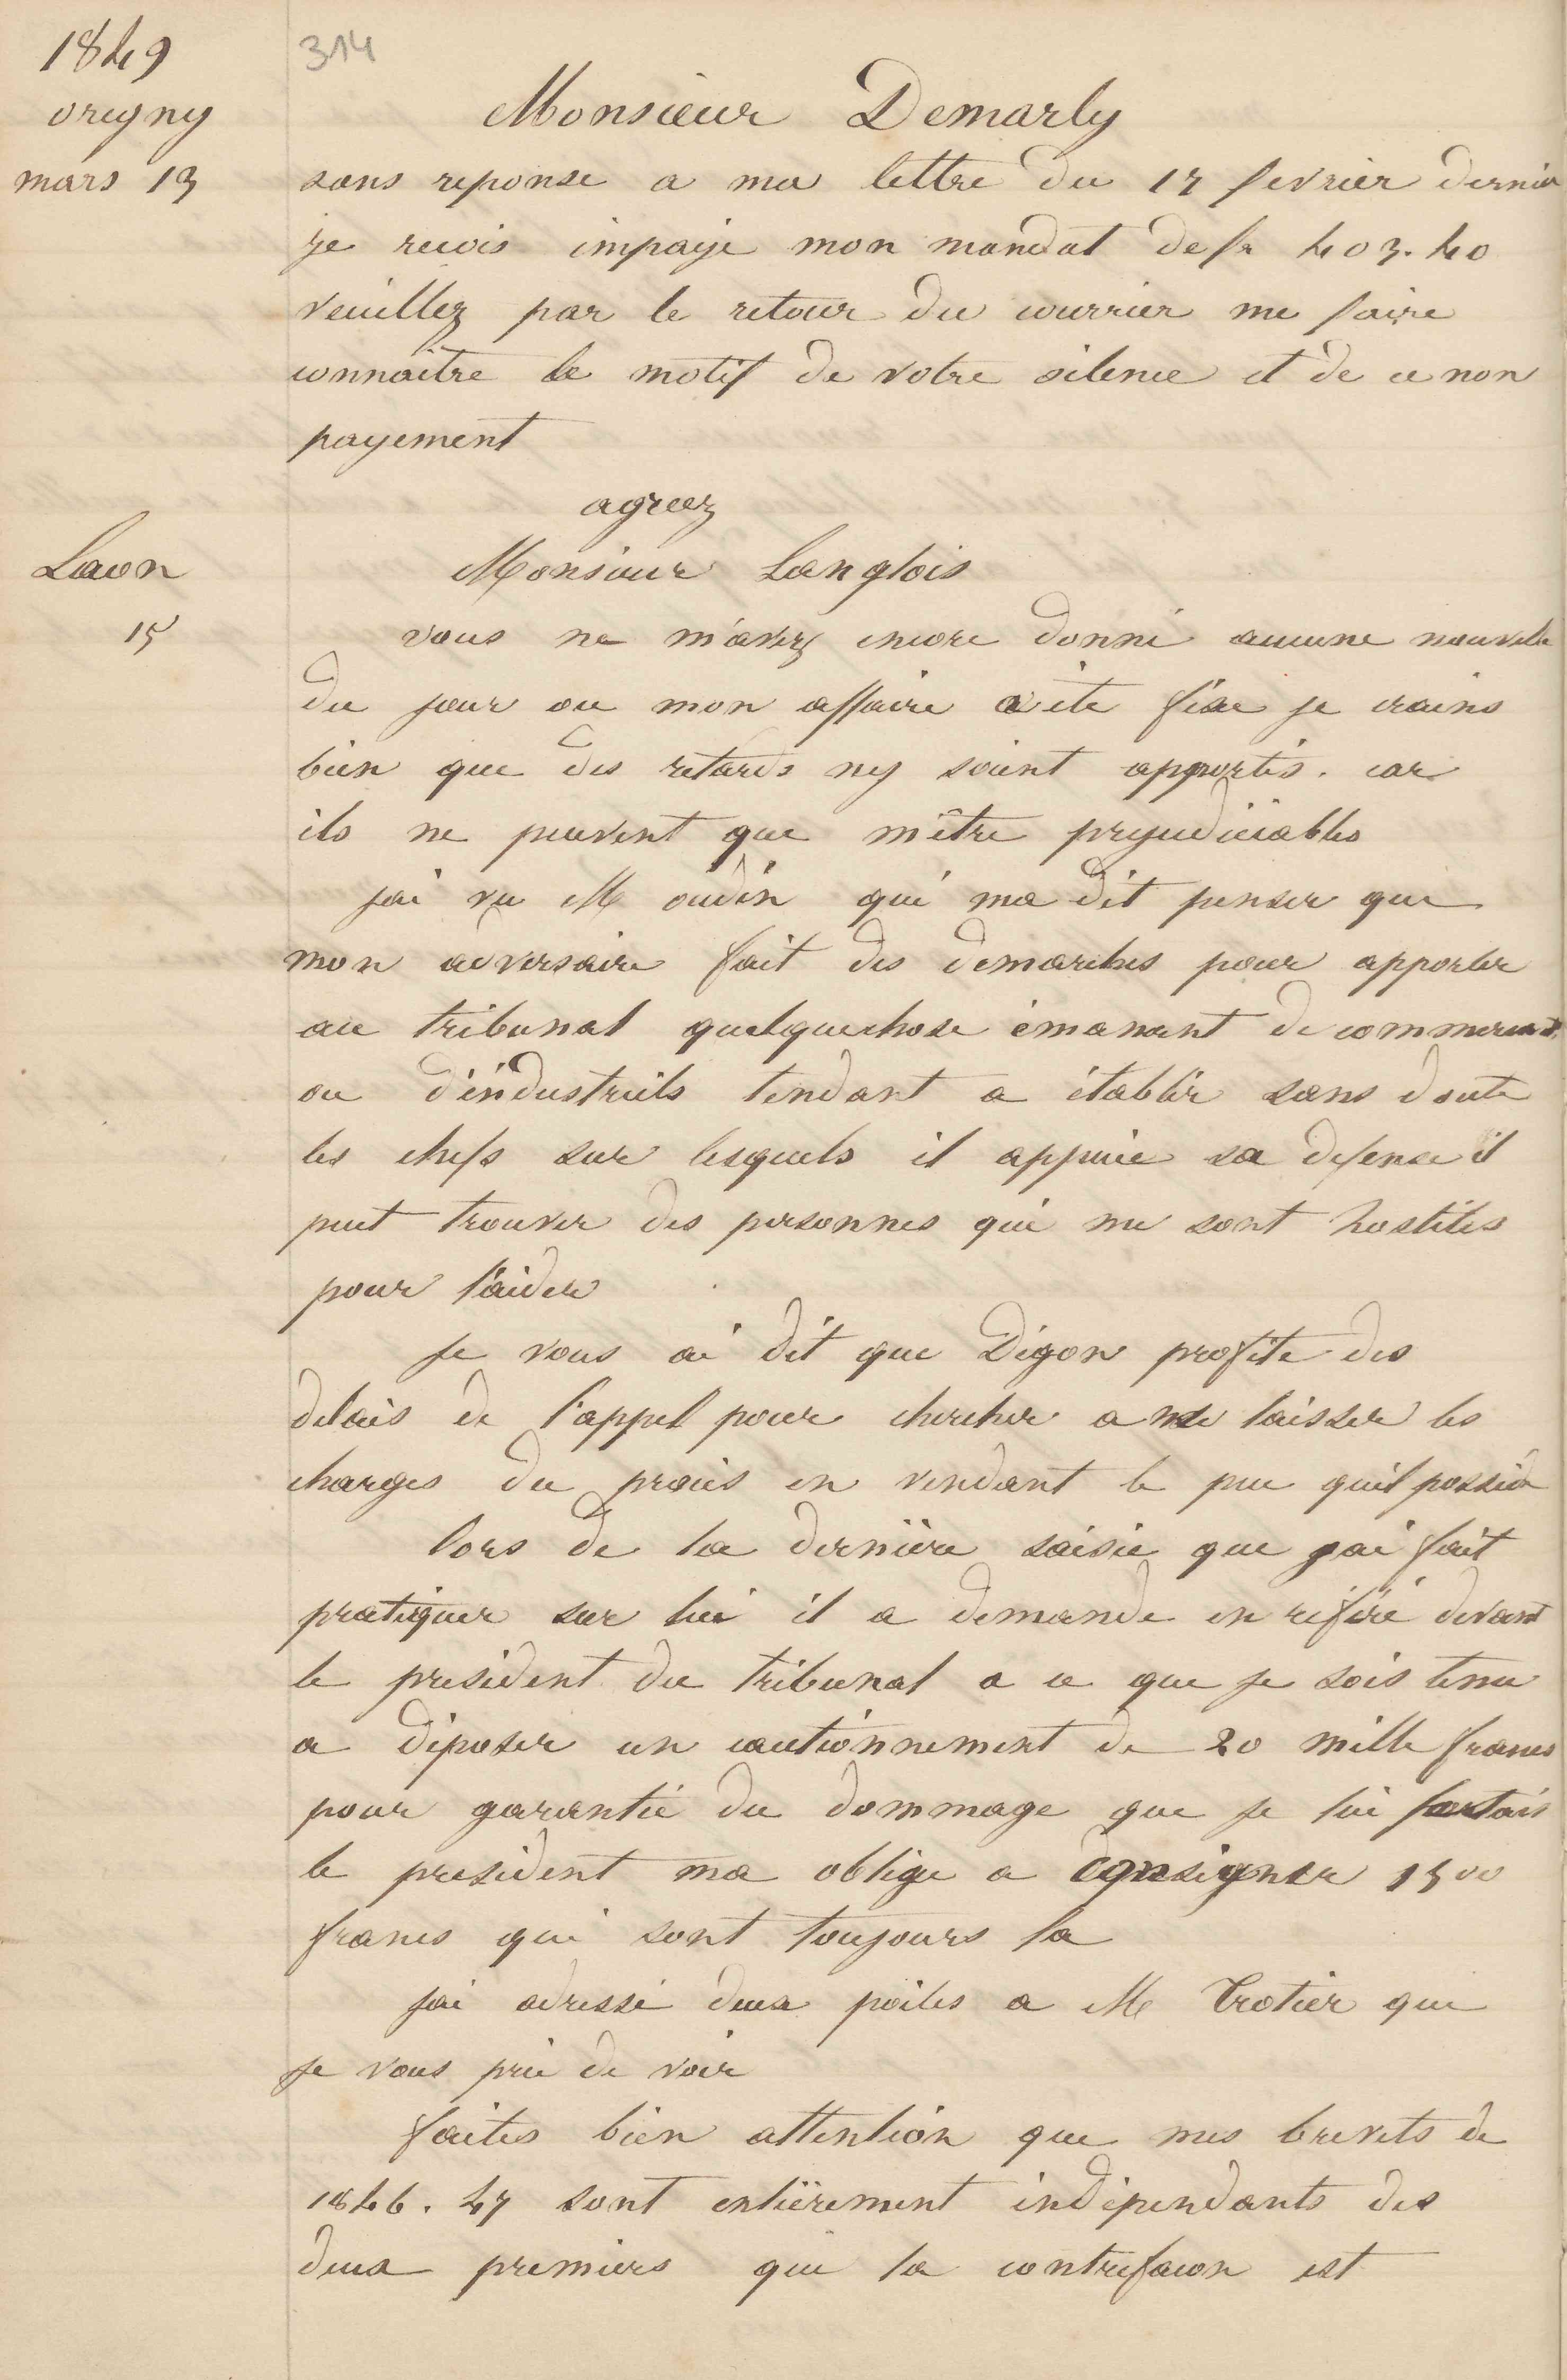 1849
314
origny
Monsieur Demarly
mars 13
sans reponse a ma lettre du 17 fevrier dernier
je recois impayé mon mandat de fr 403.40
veuillez par le retour du courrier me faire
connaître le motif de votre silence et de ce non
payement
agreez
Laon
Monsieur Langlois
15
vous ne m'avez encore donné aucune nouvelle
du jour ou mon affaire a été fixe je crains
bien que des retards ny soient apportés. car
ils ne peuvent que m'être prejudiciables
jai vu M oudin qui ma dit penser que
mon adversaire fait des demarches pour apporter
au tribunal quelquechose émanant de commercants
ou d'industriels tendant a établir sans doute
les chefs sur lesquels il appuie sa defense il
peut trouver des personnes qui me sont hostiles
pour l'aider
je vous ai dit que Digon profite des
delais de l'appel pour chercher a me laisser les
charges du procés en vendant le peu qu'il possède
lors de la dernière saisie que jai fait
pratiquer sur lui il a demande en référé devant
le president du tribunal a ce que je sois tenu
a déposer un cautionnement de 20 mille francs
pour garantie du dommage que je lui
le president ma oblige a consigner 1500
francs qui sont toujours la
jai adressé deux poêles a M Trotier que
je vous prie de voir
faites bien attention que mes brevets de
1846. 47 sont entièrement indépendants des
deux premiers que la contrefacon est